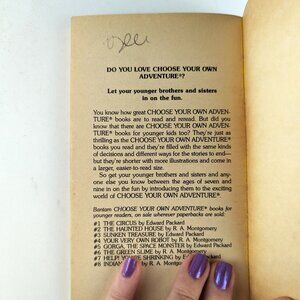 DO YOU LOVE CHOOSE YOUR OWN
ADVENTURE®?
Let your younger brothers and sisters
in on the fun.
You know how great CHOOSE YOUR OWN ADVEN-
TURE® books are to read and reread. But did you
know that there are CHOOSE YOUR OWN ADVEN-
TURE® books for younger kids too? They're just as
thrilling as the CHOOSE YOUR OWN ADVENTURE®
books you read and they're filled with the same kinds
of decisions and different ways for the stories to end—
but they're shorter with more illustrations and come in
a larger, easier-to-read size.
So get your younger brothers and sisters and any-
one else you know between the ages of seven and
nine in on the fun by introducing them to the exciting
world of CHOOSE YOUR OWN ADVENTURE®.
Bantam CHOOSE YOUR OWN ADVENTURE® books for
younger readers, on sale wherever paperbacks are sold:
#1 THE CIRCUS by Edward Packard
#2 THE HAUNTED HOUSE by R. A. Montgomery
#3 SUNKEN TREASURE by Edward Packard
#4 YOUR VERY OWN ROBOT by R. A. Montgomery
#5 GORGA, THE SPACE MONSTER by Edward Packard
#6 THE GREEN SLIME by R. A. Montgomery
#7 HELP! YOU'RE SHRINKING by Edward Packard
#8 INDIAN by R. A. Montgomery